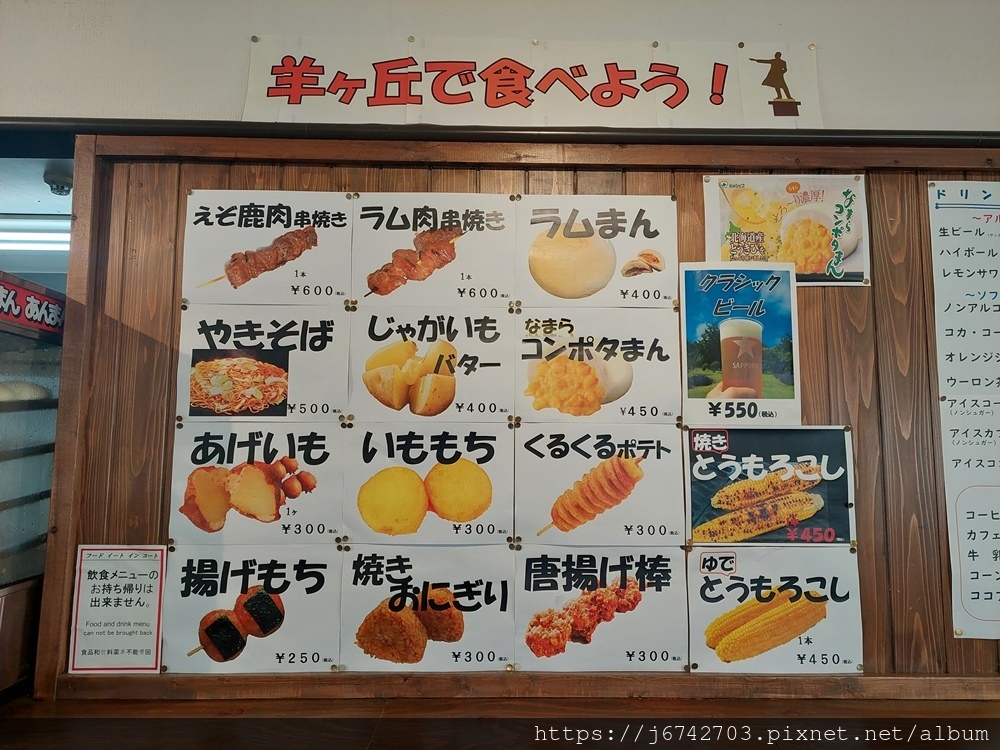 羊ヶ丘で食べよう！
えぞ鹿肉串焼き
1本
¥600(税込)
ラム肉串焼き
1本
¥600(税込)
ラムまん
¥400(税込)
北海道産
とうきび
なまら
コンポタまん
クラシック
ビール
SAPPORO
¥550(税込)
やきそば
¥500(税込)
じゃがいも
バター
¥400(税込)
なまら
コンポタまん
¥450(税込)
あげいも
1ヶ
¥300(税込)
いももち
¥300(税込)
くるくるポテト
¥300(税込)
焼き
とうもろこし
¥450
揚げもち
¥250(税込)
焼き
おにぎり
¥300(税込)
唐揚げ棒
¥300(税込)
ゆで
とうもろこし
1本
¥450(税込)
フード イート イン コート
飲食メニューの
お持ち帰りは
出来ません。
Food and drink menu
can not be brought back
まん あんまん
ドリン
～アル
生ビール
ハイボール
レモンサワ
～ソフ
ノンアルコ
コカ・コー
オレンジジ
ウーロン茶
アイスコー
(ノンシュガー)
アイスカフ
(ノンシュガー)
アイスココ
コーヒ
カフェ
牛 乳
コーン
ココア
https://j6742703.pixnet.net/album